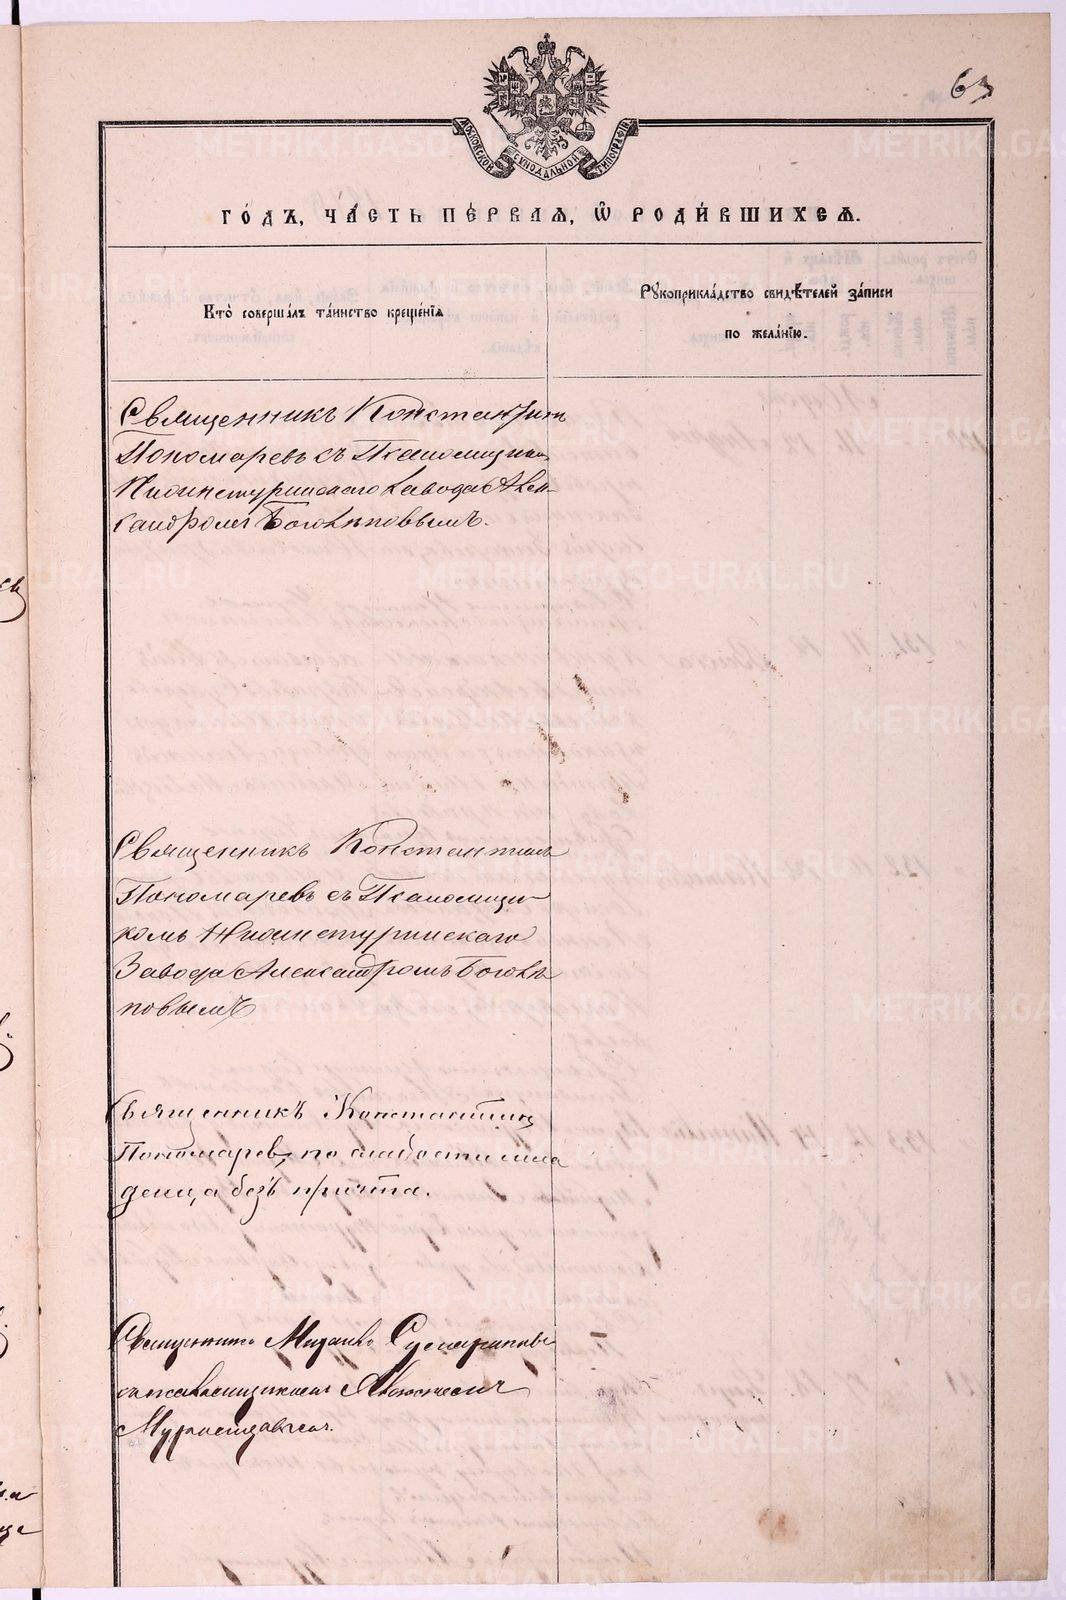 63
МОСКОВСКОЙ СѴНОДАЛЬНОЙ ТИПОГРАФІИ
ГО́ДЪ, ЧА́СТЬ ПЕ́РВАЯ, Ѡ҆ РОДИ́ВШИХСЯ.
Кто̀ соверша́лъ та́инство креще́нїя
Рꙋкоприкла́дство свидѣ́телей за́писи
по жела́нїю.
Священникъ Константин
Пономаревъ съ Псаломщиком
Нижнетуринскаго завода Алек-
сандромъ Боголѣповымъ.
Священникъ Константинъ
Пономаревъ съ Псаломщи-
комъ Нижнетуринскаго
Завода Александромъ Боголѣ
повымъ
Священникъ Константинъ
Пономаревъ, по слабости мла
денца безъ причта.
Священникъ Михаилъ
съ псаломщикомъ
METRIKI.GASO-URAL.RU